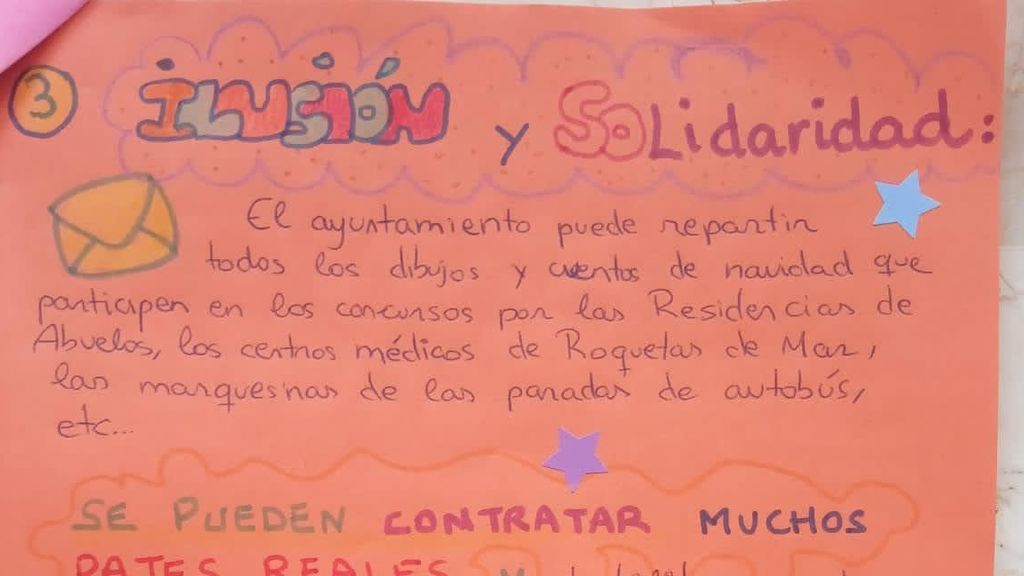 3 ILUSIÓN y SOLidaridad:
El ayuntamiento puede repartir
todos los dibujos y cuentos de navidad que
participen en los concursos por las Residencias de
Abuelos, los centros médicos de Roquetas de Mar,
las marquesinas de las paradas de autobús,
etc...
SE PUEDEN CONTRATAR MUCHOS
PAJES REALES